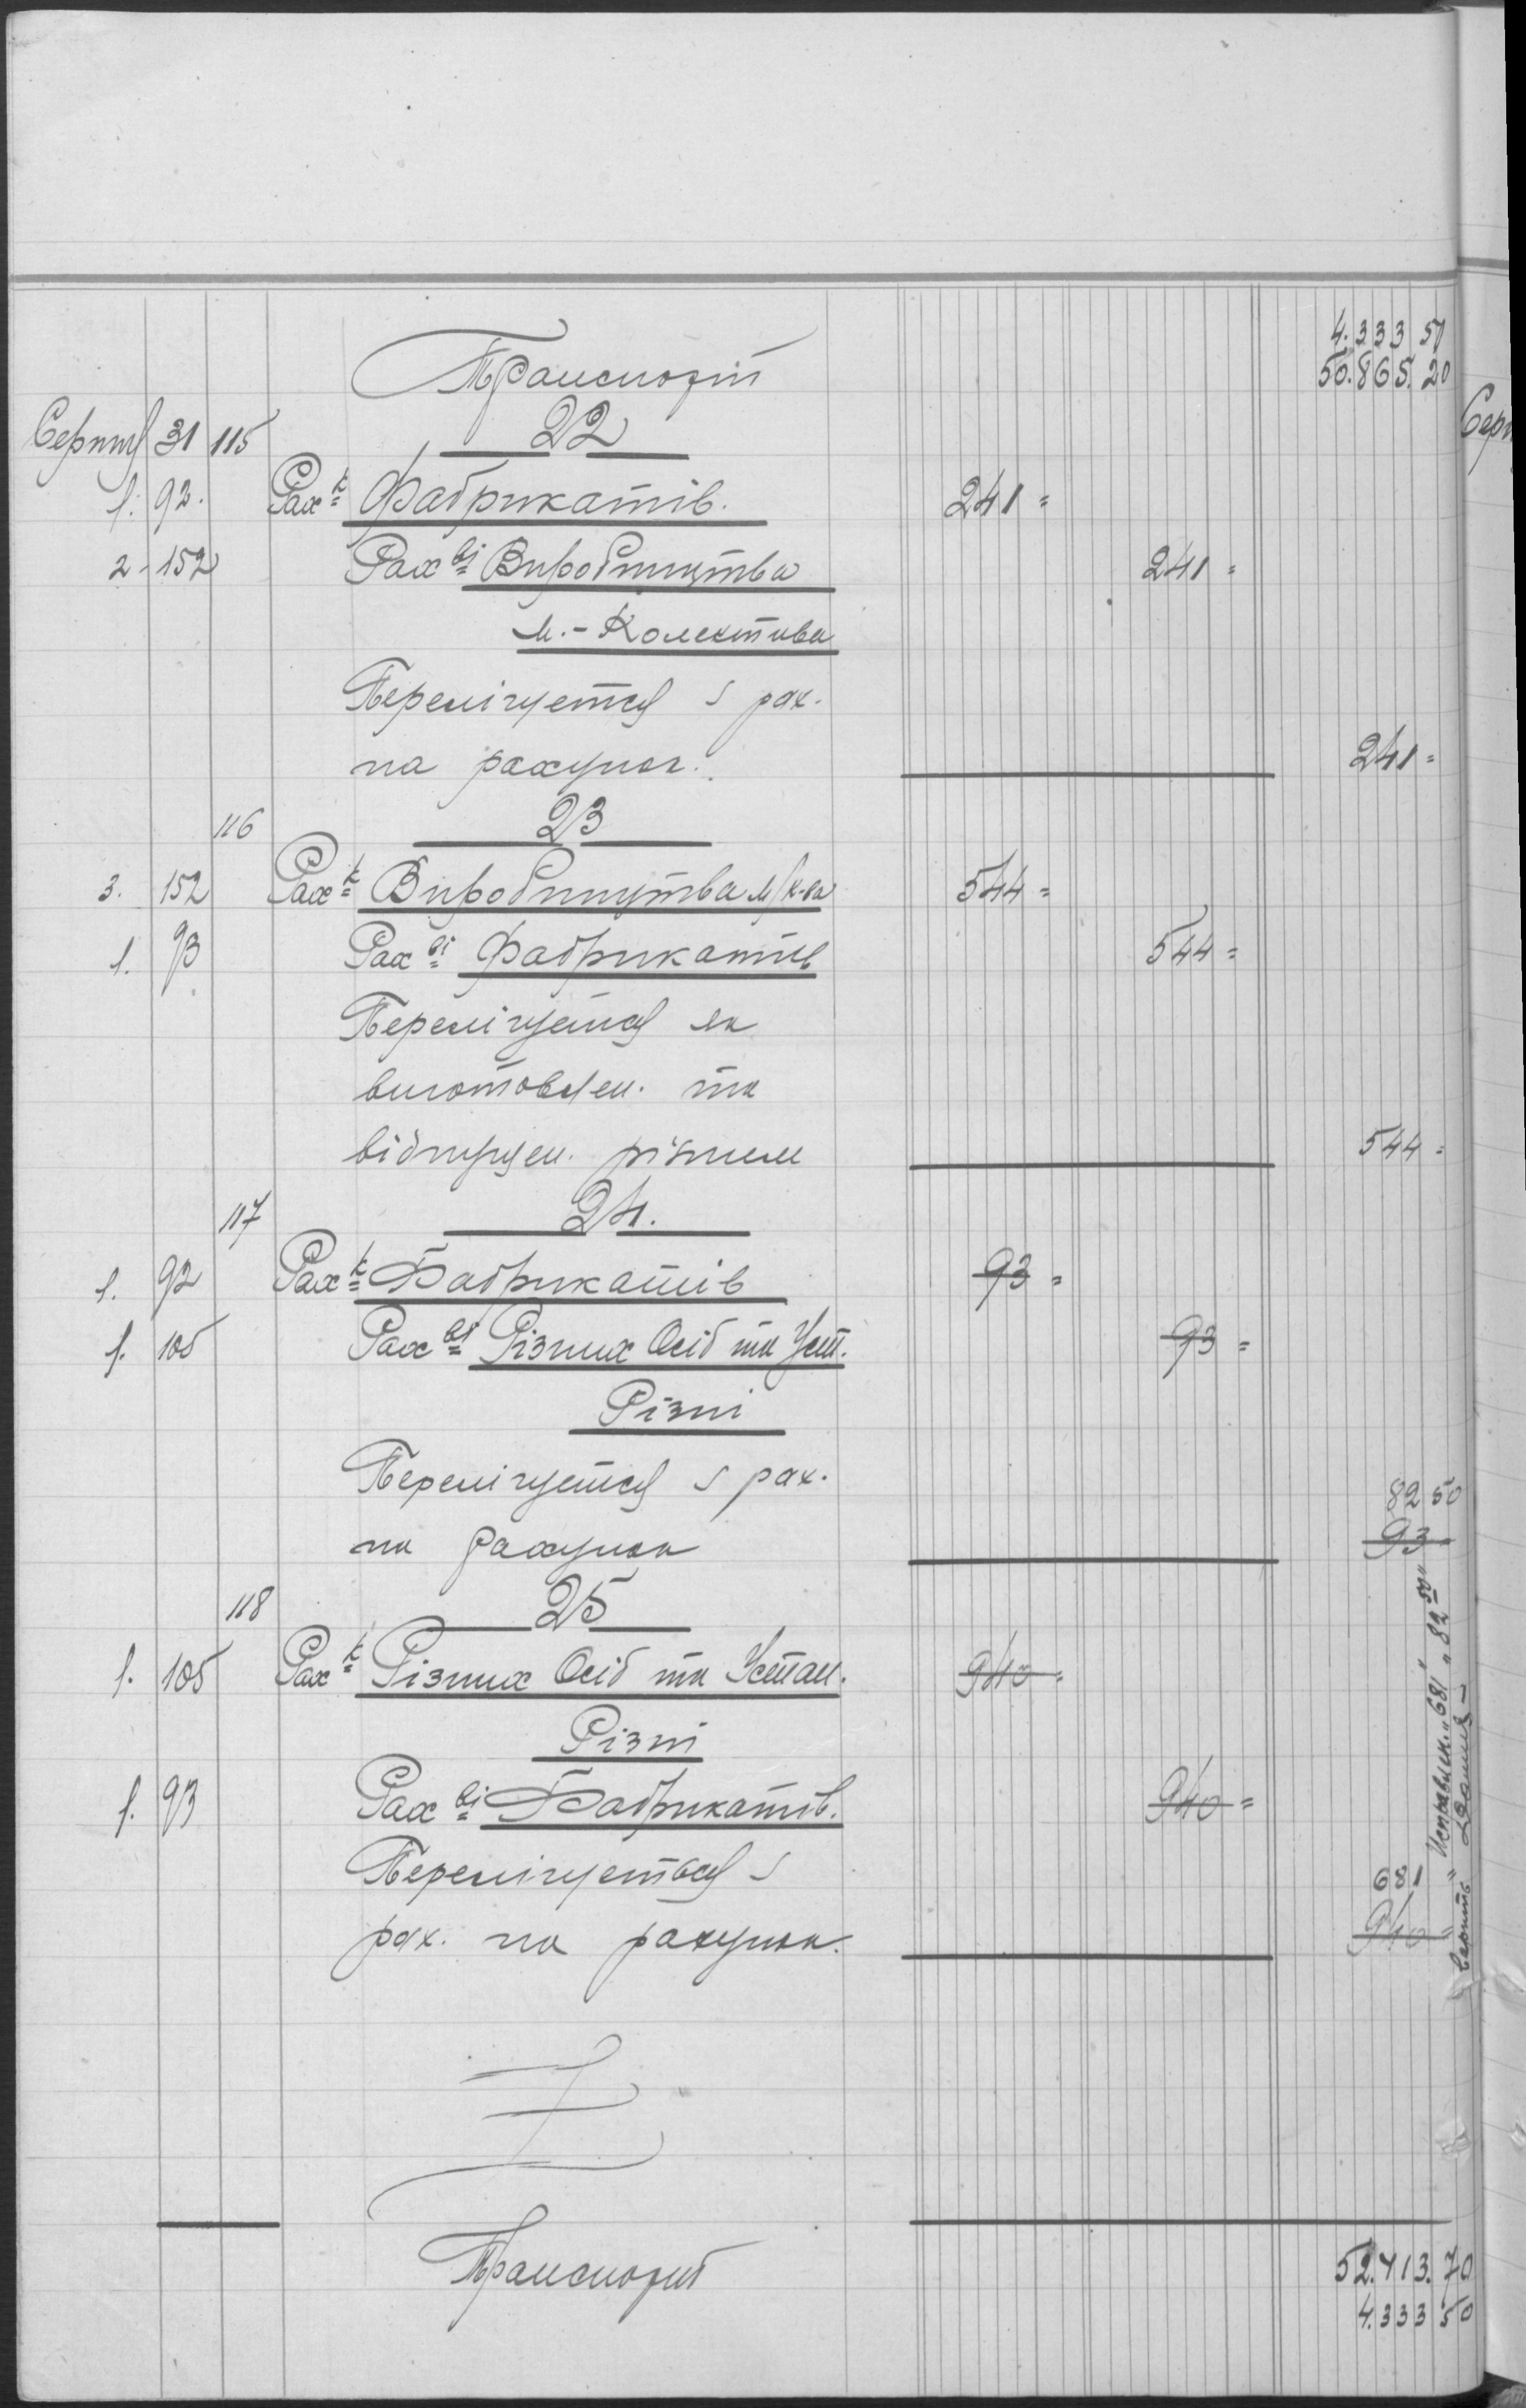 4.333 50
Транспорт 50.865.20
Серпня 31 115 22
1. 92. Рах к Фабрикатів. 241 =
2 - 152 Рах ві Виробництва 241 =
м.-Колектива
Перелічуется з рах.
на рахунок. 241 =
116 23
3. 152 Рах к Виробництва м/к-ва 544 =
1. 93 Рах ві Фабрикатів 544 =
Перелічуется як
виготовлен. та
відпущен. різним 544 =
117 24.
1. 92 Рах к Фабрикатів 93 =
1. 105 Рах ві Різних Осіб та Уст. 93 =
Різні
Перелічуется з рах. 82 50
на рахунок 93 =
118 25
1. 105 Рах к Різних Осіб та Устан. 940 =
Різні
1. 93 Рах ві Фабрикатів. 940 =
Перелічуеться з 681
рах. на рахунок. 940 =
"Исправлен. "681" "82 50"
верить
Транспорт 52.413.70
4.333 50
Серп